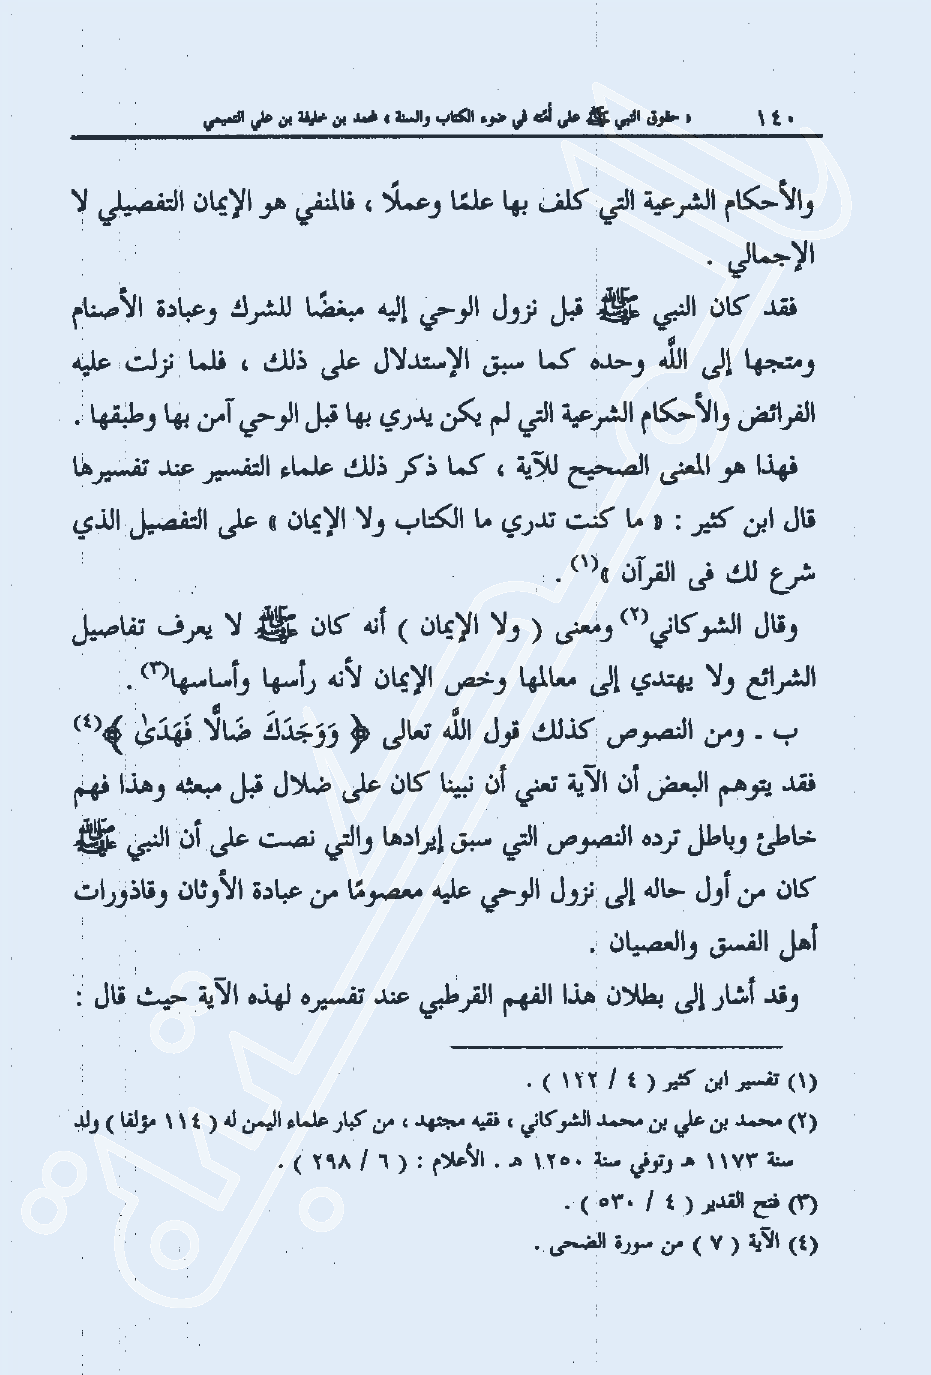 ١٤٠ « حقوق النبي ﷺ على أمته في ضوء الكتاب والسنة » محمد بن خليفة بن علي التميمي
والأحكام الشرعية التي كلف بها علمًا وعملًا ، فالمنفي هو الإيمان التفصيلي لا
الإجمالي .
فقد كان النبي ﷺ قبل نزول الوحي إليه مبغضًا للشرك وعبادة الأصنام
ومتجها إلى اللَّه وحده كما سبق الإستدلال على ذلك ، فلما نزلت عليه
الفرائض والأحكام الشرعية التي لم يكن يدري بها قبل الوحي آمن بها وطبقها .
فهذا هو المعنى الصحيح للآية ، كما ذكر ذلك علماء التفسير عند تفسيرها
قال ابن كثير : « ما كنت تدري ما الكتاب ولا الإيمان » على التفصيل الذي
شرع لك فى القرآن »(١) .
وقال الشوكاني(٢) ومعنى ( ولا الإيمان ) أنه كان ﷺ لا يعرف تفاصيل
الشرائع ولا يهتدي إلى معالمها وخص الإيمان لأنه رأسها وأساسها(٣) .
ب ـ ومن النصوص كذلك قول اللَّه تعالى ﴿ وَوَجَدَكَ ضَالًّا فَهَدَىٰ ﴾(٤)
فقد يتوهم البعض أن الآية تعني أن نبينا كان على ضلال قبل مبعثه وهذا فهم
خاطئ وباطل ترده النصوص التي سبق إيرادها والتي نصت على أن النبي ﷺ
كان من أول حاله إلى نزول الوحي عليه معصومًا من عبادة الأوثان وقاذورات
أهل الفسق والعصيان .
وقد أشار إلى بطلان هذا الفهم القرطبي عند تفسيره لهذه الآية حيث قال :
(١) تفسير ابن كثير ( ٤ / ١٢٢ ) .
(٢) محمد بن علي بن محمد الشوكاني ، فقيه مجتهد ، من كبار علماء اليمن له ( ١١٤ مؤلفا ) ولد
سنة ١١٧٣ هـ وتوفي سنة ١٢٥٠ هـ . الأعلام : ( ٦ / ٢٩٨ ) .
(٣) فتح القدير ( ٤ / ٥٣٠ ) .
(٤) الآية ( ٧ ) من سورة الضحى .